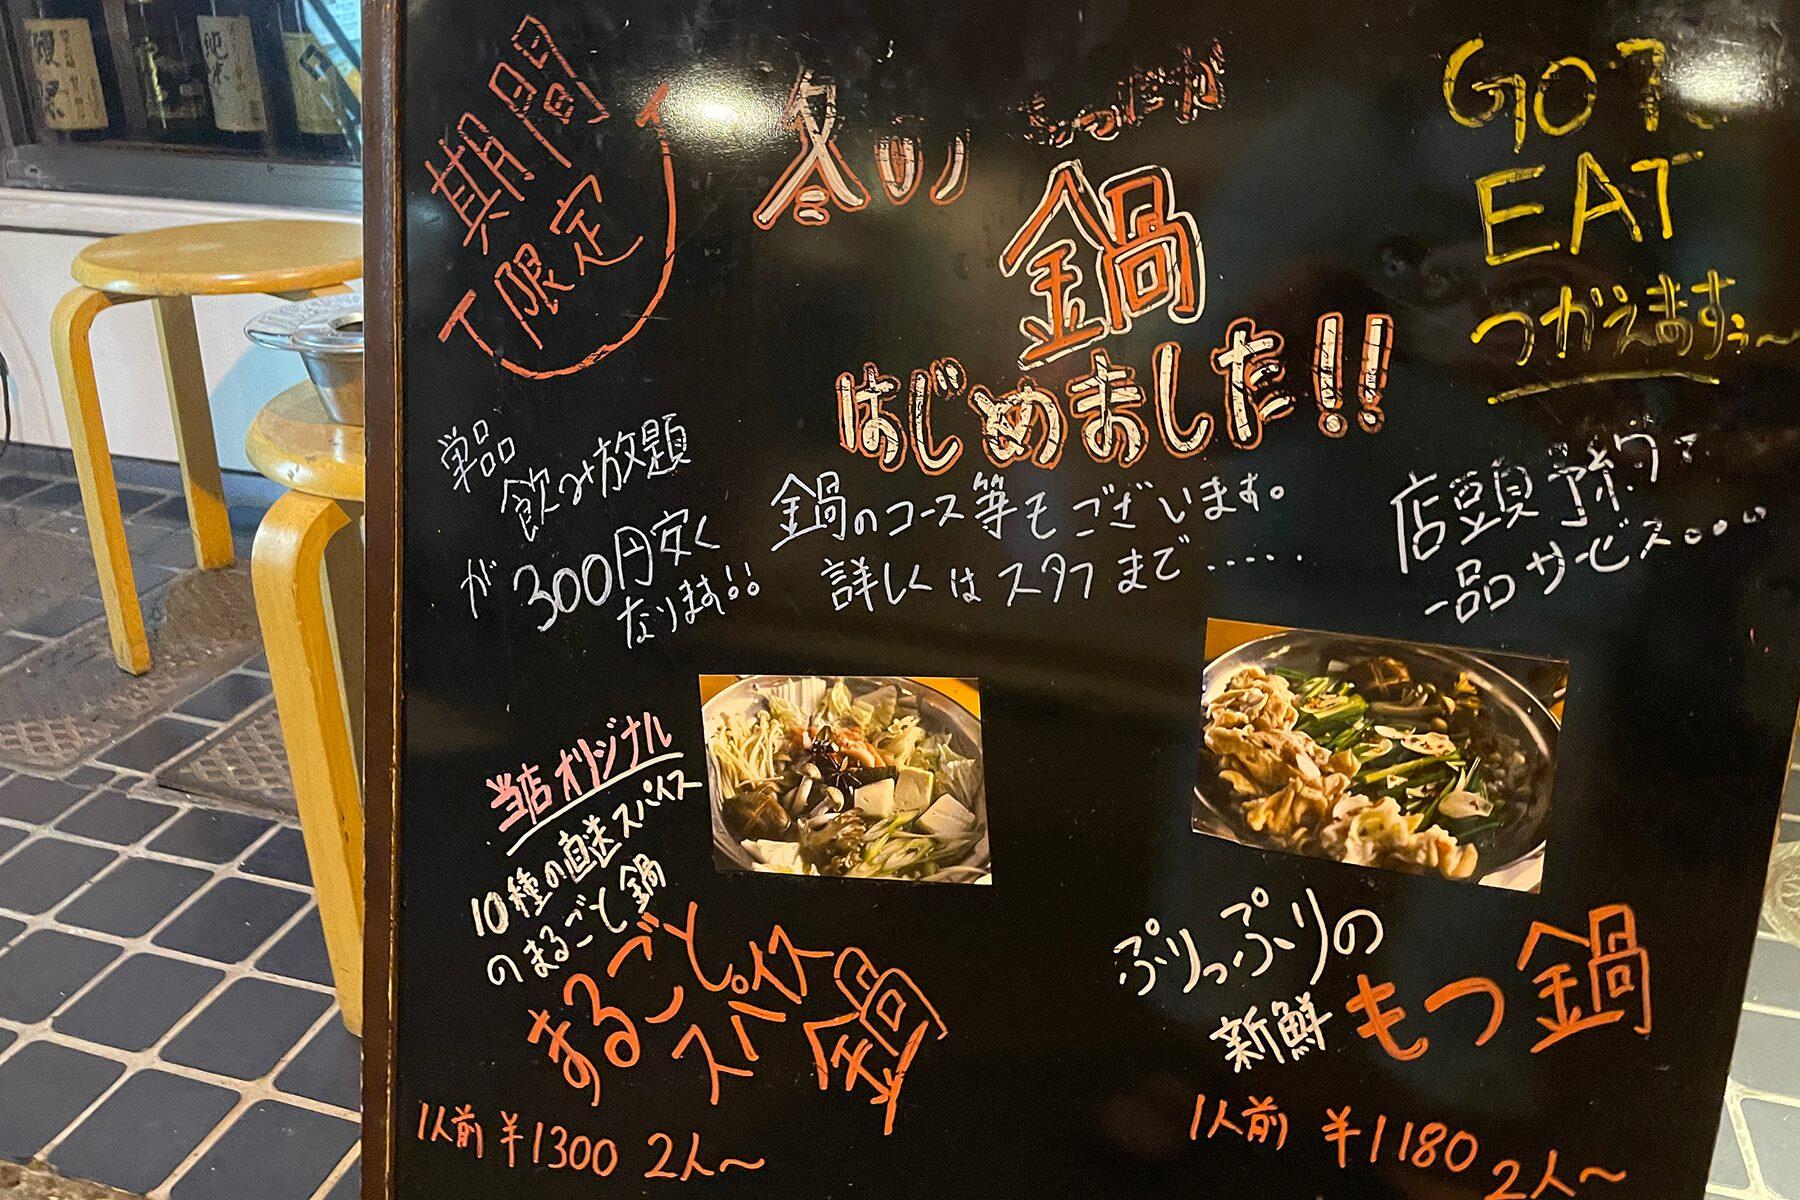 期間
限定
冬の
鍋
はじめました!!
GOTO
EAT
つかえますぅ〜
単品
飲み放題
が300円安く
なります!!
鍋のコース等もございます。
詳しくはスタッフまで……
店頭予約で
一品サービス…
当店オリジナル
10種の直送スパイス
のまるごと鍋
まるごと
スパイス
鍋
1人前 ¥1300 2人〜
ぷりっぷりの
新鮮もつ鍋
1人前 ¥1180
2人〜